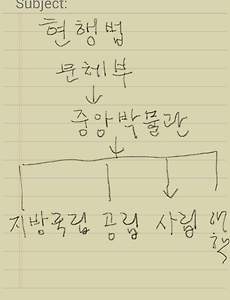 Subject:
현행법
문체부
중앙박물관
지방국립 공립 사립 대학